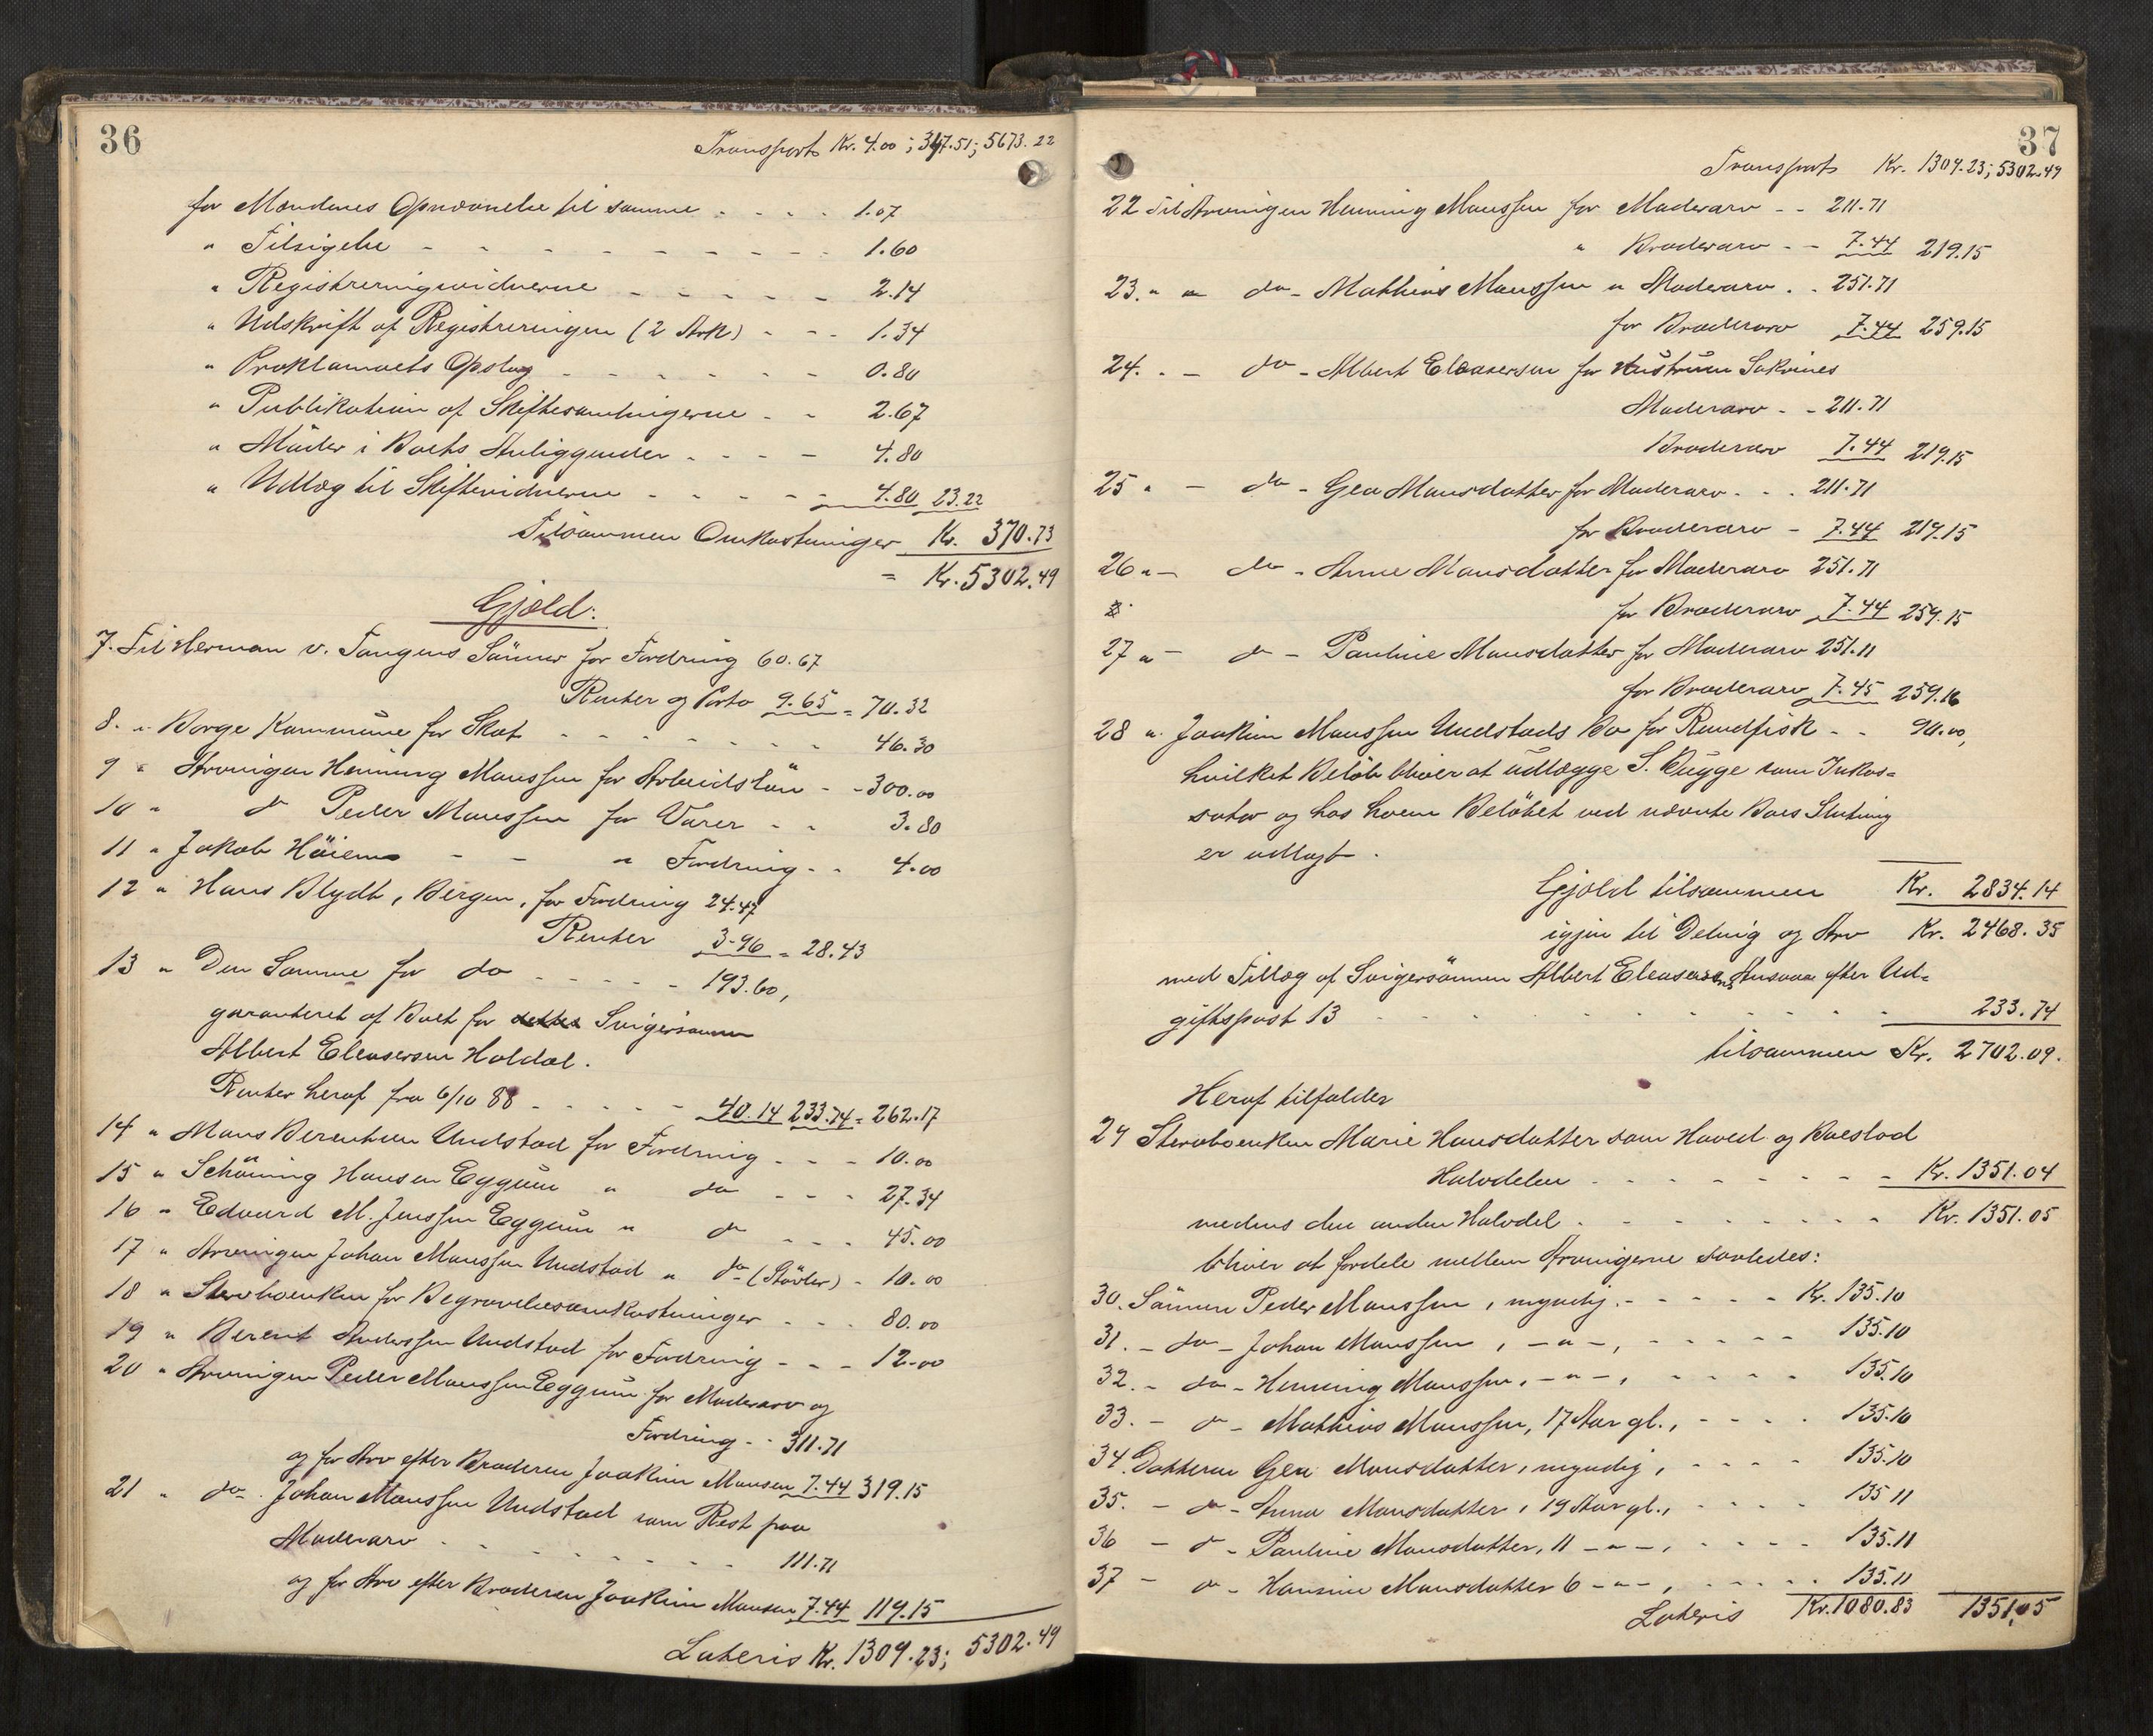 36
Transport Kr. 4.00; 347.51; 5673.22
for Mændenes Opnævnelse til samme - - - - 1.07
" Tilsigelse - - - - - - - - - 1.60
" Registreringsvidnerne - - - - - 2.14
" Udskrift af Registreringen (2 Ark) - - - 1.34
" Proklamaets Opslag - - - - - - - 0.80
" Publikation af Skiftesamlingerne - - 2.67
" Møder i Boets Anliggender - - - - 4.80
" Udlæg til Skiftevidnerne - - - - - 4.80 23.22
Tilsammen Omkostninger Kr. 370.73
= Kr. 5302.49
Gjæld:
7. Til Herman v. Tangens Sønner for Fordring 60.67
Renter og Porto 9.65 = 70.32
8. " Borge Kommune for Skat - - - - - - - 46.30
9 " Arvingen Henning Monssen for Arbeidsløn - - 300.00
10 " do Peder Monssen for Varer - - 3.80
11 " Jakob Höiem - - " Fordring - - 4.00
12 " Hans Blydt, Bergen, for Fordring 24.47
Renter 3.96 = 28.43
13 " Den Samme for do - - - - - 193.60,
garanteret af Boet for Svigersønnen
Albert Eleasersen Holdal.
Renter heraf fra 6/10 88 - - - - - 40.14 233.74 = 262.17
14 " Mons Berentsen Undstad for Fordring - - - 10.00
15 " Schöning Hansen Eggum " do - - - 27.34
16 " Edvard M. Jenssen Eggum " do - - - 45.00
17 " Arvingen Johan Monssen Undstad " do (Støvler) - 10.00
18 " Stervboenken for Begravelsesomkostninger - - - 80.00
19 " Berent Anderssen Undstad for Fordring - - - 12.00
20 " Arvingen Peder Monssen Eggum for Moderarv og
Fordring - - 311.71
og for Arv efter Broderen Joakim Monsen 7.44 319.15
21 " do Johan Monssen Undstad som Rest paa
Moderarv - - - - - - - - - 111.71
og for Arv efter Broderen Joakim Monsen 7.44 119.15
Lateris Kr. 1309.23; 5302.49
37
Transport Kr. 1309.23; 5302.49
22 Til Arvingen Henning Monssen for Moderarv - - 211.71
" Broderarv - - 7.44 219.15
23. " " do - Mathias Monssen " Moderarv - - 251.71
for Broderarv 7.44 259.15
24. " - do - Albert Eleasersen for Hustruen Sakrines
Moderarv - - 211.71
Broderarv 7.44 219.15
25 " - do - Gea Monsdatter for Moderarv - - - 211.71
for Broderarv - 7.44 219.15
26 " - do - Anne Monsdatter for Moderarv 251.71
for Broderarv 7.44 259.15
27 " - do - Pauline Monsdatter for Moderarv 251.71
for Broderarv 7.45 259.16
28 " Joakim Monssen Undstads Bo for Rundfisk - - 90.00,
hvilket Beløb bliver at udlægge S. Bugge som Inkas=
sator og hos hvem Beløbet ved nævnte Boes Slutning
er udlagt.
Gjæld tilsammen Kr. 2834.14
igjen til Deling og Arv Kr. 2468.35
med Tillæg af Svigersønnen Albert Eleasersens Ansvar efter Ud=
giftspost 13 - - - - - - - - - 233.74
tilsammen Kr. 2702.09.
Heraf tilfalder
29 Stervboenken Marie Hansdatter som Hoved og Boeslod
Halvdelen - - - - - - - - Kr. 1351.04
medens den anden Halvdel - - - - - - - - Kr. 1351.05
bliver at fordele mellem Arvingerne saaledes:
30. Sønnen Peder Monssen, myndig, - - - - - Kr. 135.10
31. - do - Johan Monssen, - " -, - - - - - 135.10
32. - do - Henning Monssen, - " -, - - - - - 135.10
33. - do - Mathias Monssen, 17 Aar gl., - - - - 135.10
34. Datteren Gea Monsdatter, myndig, - - - - 135.10
35. - do - Anna Monsdatter, 19 Aar gl., - - - - 135.11
36 - do - Pauline Monsdatter, 11 - " -, - - - - 135.11
37 - do - Hansine Monsdatter 6 - " -, - - - - 135.11
Lateris Kr. 1080.83 1351.05